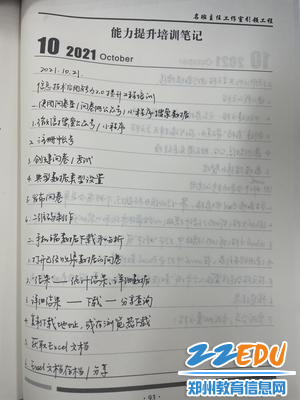 名班主任工作室引领工程
能力提升培训笔记
10 2021 October
2021.10.21.
信息技术应用能力2.0提升工程培训
一、使用问卷星/问卷网公众号/小程序搜集数据
1. 微信搜索公众号/小程序
2. 注册帐号
3. 创建问卷/考试
4. 典型数据类型设置
5. 发布问卷
6. 二维码制作
二、手机端数据下载与分析
1. 打开已经收集数据的问卷
2. 结果——统计结果、详细数据
3. 详细结果——下载——分享查询
4. 复制下载地址，或在浏览器下载
5. 获取Excel文档
6. Excel文档存档/分享
·93·
22EDU
郑州教育信息网